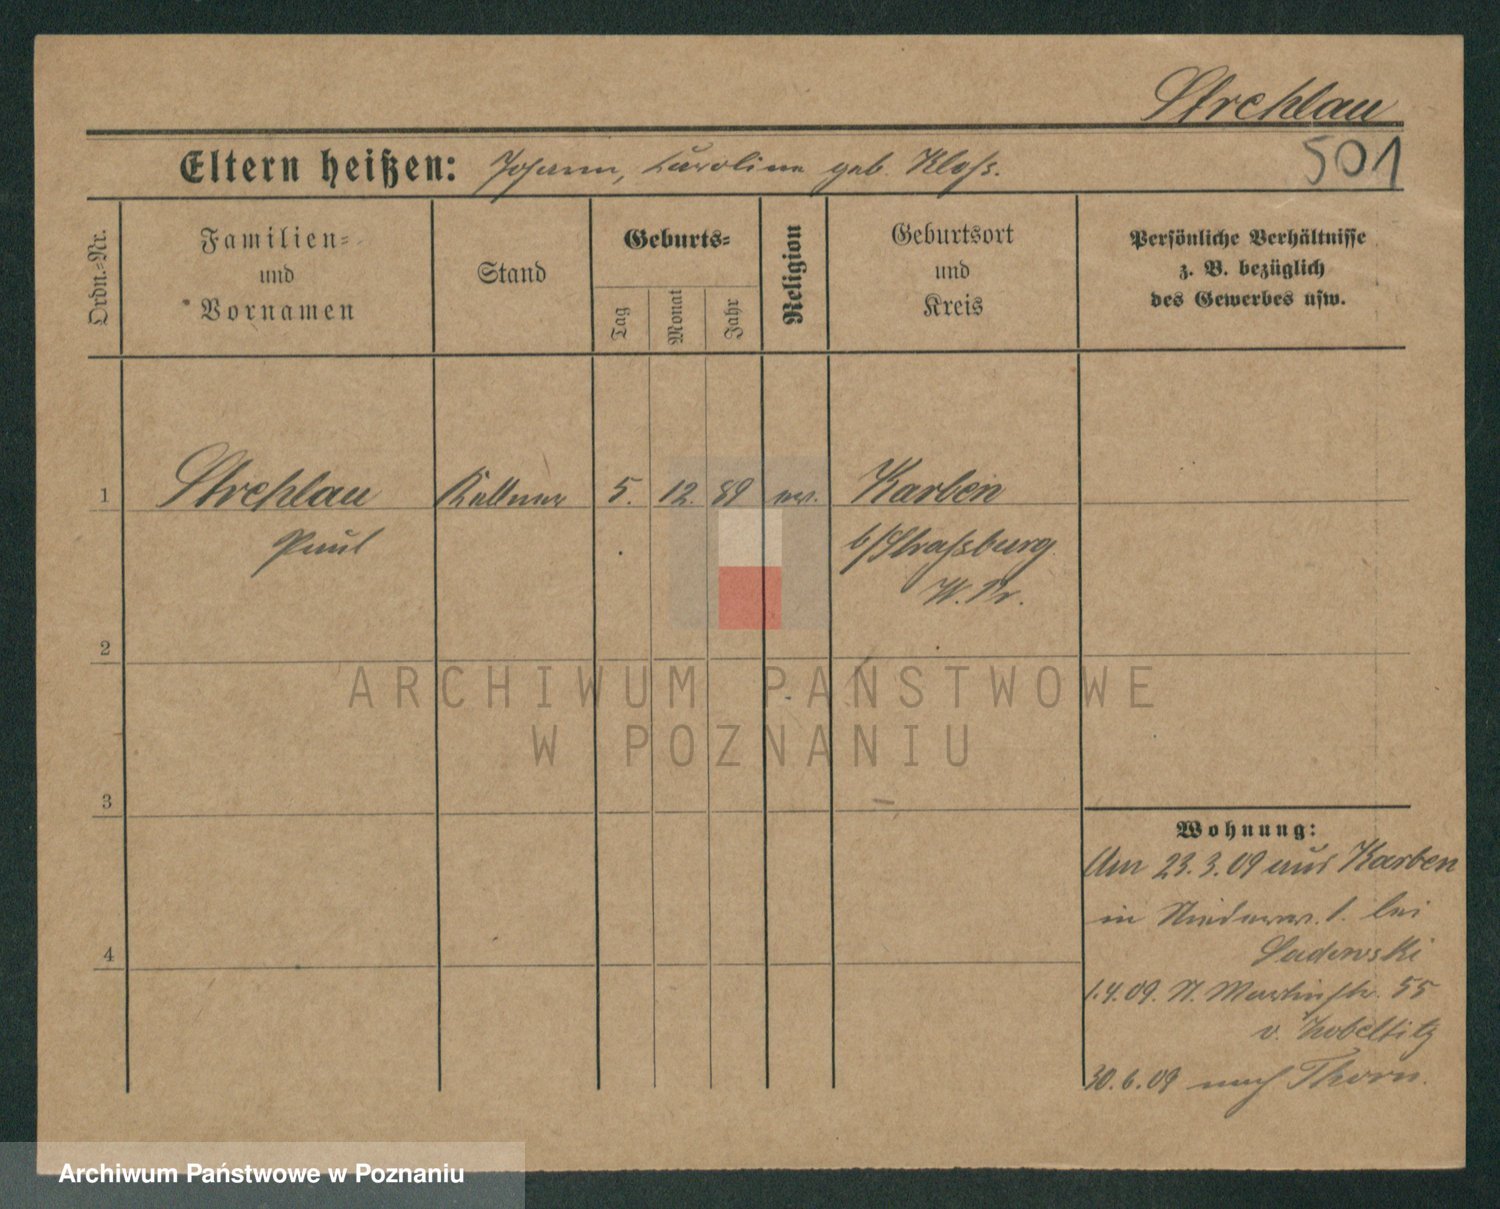 Strehlau
501
Eltern heißen: Johann, Karoline geb. Kloss.
Ordn.=Nr.
Familien=
und
Vornamen
Stand
Geburts=
Tag
Monat
Jahr
Religion
Geburtsort
und
Kreis
Persönliche Verhältnisse
z. B. bezüglich
des Gewerbes usw.
1 Strehlau Kellner 5. 12. 89 ev. Karben
Paul b/Strassburg
W. Pr.
2
ARCHIWUM PAŃSTWOWE
W POZNANIU
3
4
Wohnung:
Am 23.3.09 aus Karben
in 1. bei
Sadowski
1.4.09. St. Martinstr. 55
v. Zobeltitz
30.6.09 nach Thorn.
Archiwum Państwowe w Poznaniu